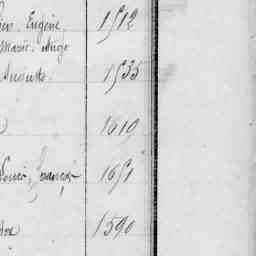 Eugène 1512
Marie, Ange
Auguste 1535
1619
Louis, François 1651
1590